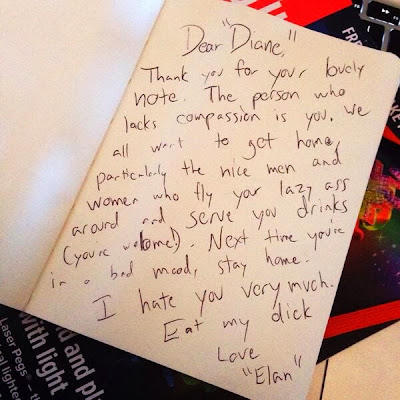 Dear "Diane,"
Thank you for your lovely
note. The person who
lacks compassion is you. We
all want to get home,
particularly the nice men and
women who fly your lazy ass
around and serve you drinks
(you're welcome!). Next time you're
in a bad mood, stay home.
I hate you very much.
Eat my dick
Love
"Elan"
FR
and pl
with light
Laser Pegs – th